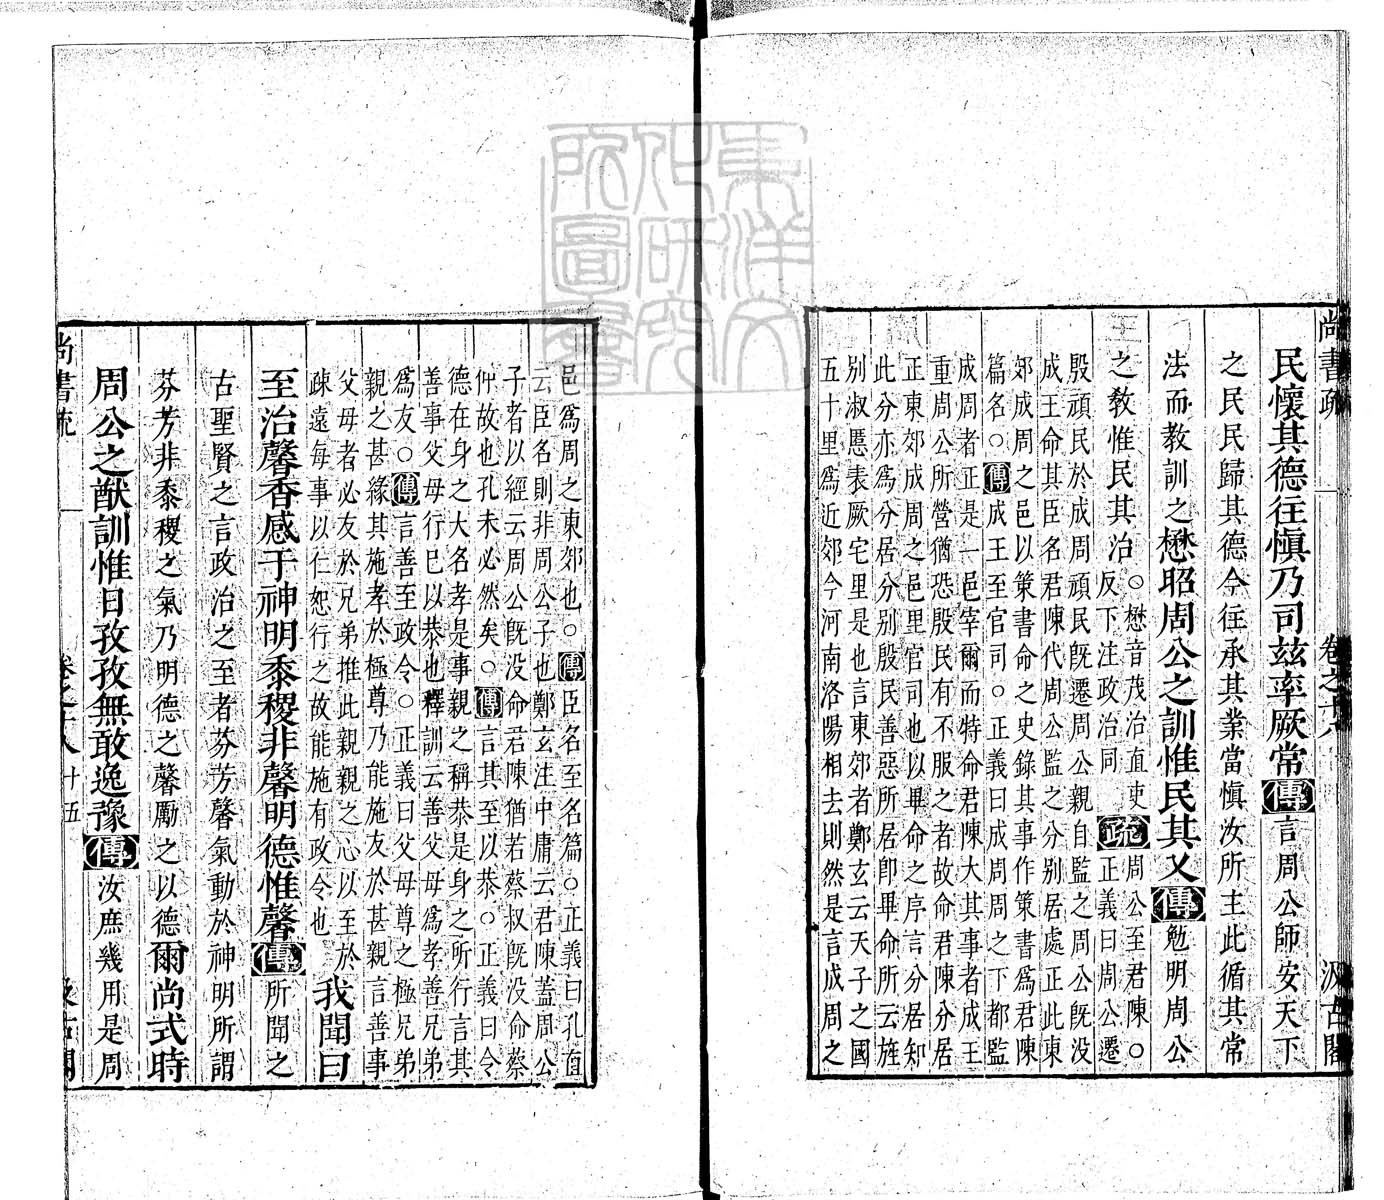 尚書疏
卷之十八
汲古閣
民懷其德往慎乃司茲率厥常傳言周公師安天下
之民民歸其德今往承其業當慎汝所主此循其常
法而教訓之懋昭周公之訓惟民其乂傳勉明周公
之教惟民其治
○懋音茂治直吏
反下注政治同
疏
周公至君陳○
正義曰周公遷
殷頑民於成周頑民旣遷周公親自監之周公旣没
成王命其臣名君陳代周公監之分别居處正此東
郊成周之邑以策書命之史錄其事作策書爲君陳
篇名○傳成王至官司○正義曰成周周之下都監
成周者正是一邑宰爾而特命君陳大其事者成王
重周公所營猶恐殷民有不服之者故命君陳分居
正東郊成周之邑里官司也以畢命之序言分居知
此分亦爲分居分别殷民善惡所居卽畢命所云旌
别淑慝表厥宅里是也言東郊者鄭玄云天子之國
五十里爲近郊今河南洛陽相去則然是言成周之
邑爲周之東郊也○傳臣名至名篇○正義曰孔直
云臣名則非周公子也鄭玄注中庸云君陳蓋周公
子者以經云周公旣没命君陳猶若蔡叔旣没命蔡
仲故也孔未必然矣○傳言其至以恭○正義曰令
德在身之大名孝是事親之稱恭是身之所行言其
善事父母行巳以恭也釋訓云善父母爲孝善兄弟
爲友○傳言善至政令○正義曰父母尊之極兄弟
親之甚緣其施孝於極尊乃能施友於甚親言善事
父母者必友於兄弟推此親親之心以至於
疎遠每事以仁恕行之故能施有政令也
我聞曰
至治馨香感于神明黍稷非馨明德惟馨傳所聞之
古聖賢之言政治之至者芬芳馨氣動於神明所謂
芬芳非黍稷之氣乃明德之馨勵之以德爾尚式時
周公之猷訓惟日孜孜無敢逸豫傳汝庶幾用是周
尚書疏
卷之十八
十五
汲古閣
東洋文
化研究
所圖書